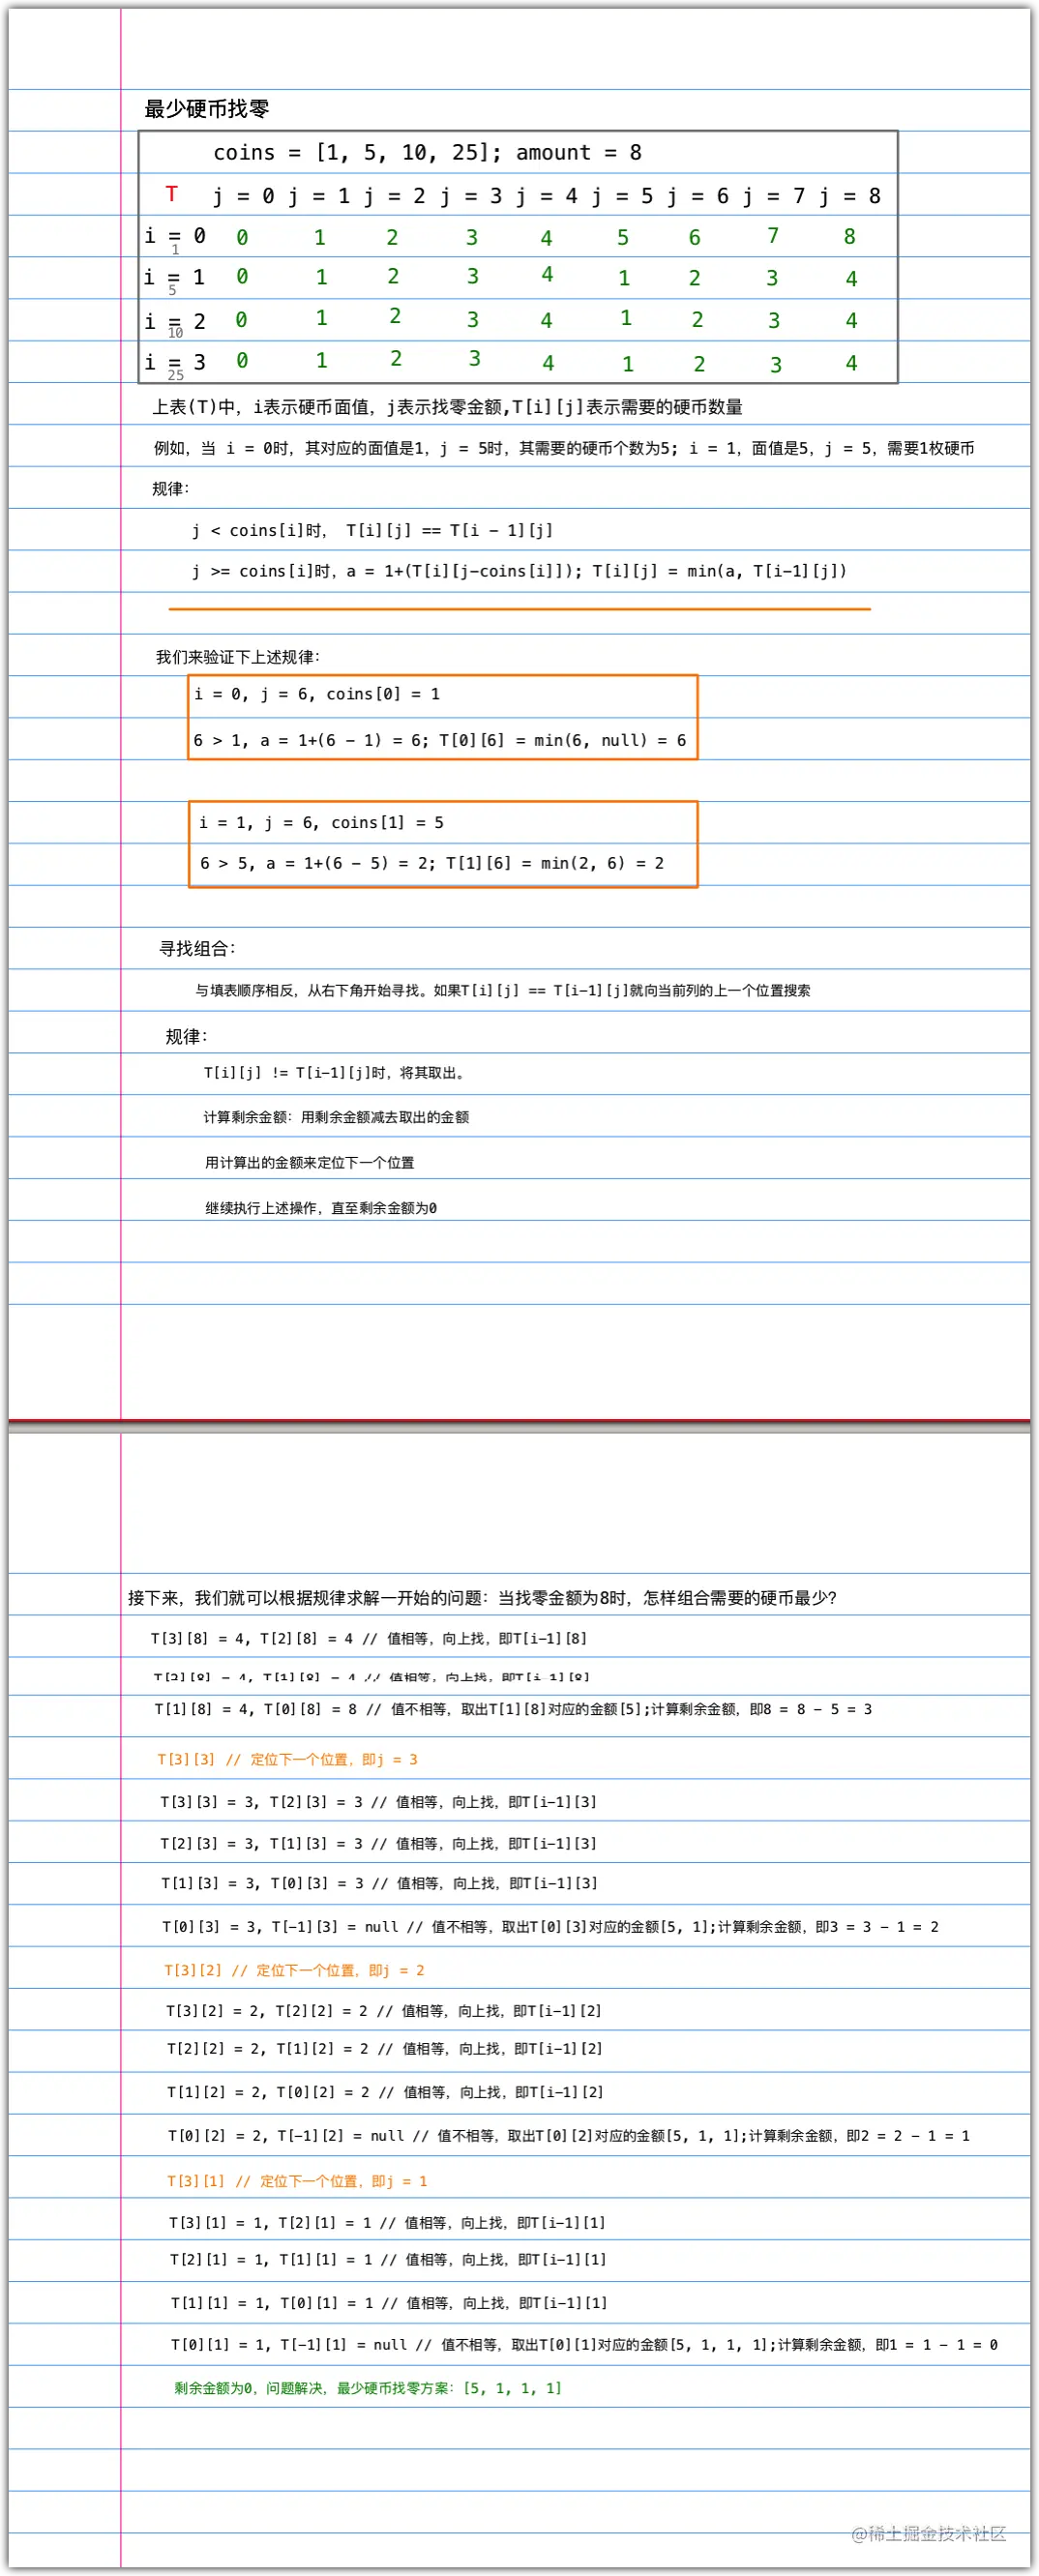 最少硬币找零
coins = [1, 5, 10, 25]; amount = 8
T j = 0 j = 1 j = 2 j = 3 j = 4 j = 5 j = 6 j = 7 j = 8
i = 0 0 1 2 3 4 5 6 7 8
1
i = 1 0 1 2 3 4 1 2 3 4
5
i = 2 0 1 2 3 4 1 2 3 4
10
i = 3 0 1 2 3 4 1 2 3 4
25
上表(T)中，i表示硬币面值，j表示找零金额,T[i][j]表示需要的硬币数量
例如，当 i = 0时，其对应的面值是1，j = 5时，其需要的硬币个数为5; i = 1，面值是5，j = 5，需要1枚硬币
规律：
j < coins[i]时， T[i][j] == T[i - 1][j]
j >= coins[i]时，a = 1+(T[i][j-coins[i]]); T[i][j] = min(a, T[i-1][j])
我们来验证下上述规律：
i = 0, j = 6, coins[0] = 1
6 > 1, a = 1+(6 - 1) = 6; T[0][6] = min(6, null) = 6
i = 1, j = 6, coins[1] = 5
6 > 5, a = 1+(6 - 5) = 2; T[1][6] = min(2, 6) = 2
寻找组合：
与填表顺序相反，从右下角开始寻找。如果T[i][j] == T[i-1][j]就向当前列的上一个位置搜索
规律：
T[i][j] != T[i-1][j]时，将其取出。
计算剩余金额：用剩余金额减去取出的金额
用计算出的金额来定位下一个位置
继续执行上述操作，直至剩余金额为0
接下来，我们就可以根据规律求解一开始的问题：当找零金额为8时，怎样组合需要的硬币最少？
T[3][8] = 4, T[2][8] = 4 // 值相等，向上找，即T[i-1][8]
T[2][8] = 4, T[1][8] = 4 // 值相等，向上找，即T[i-1][8]
T[1][8] = 4, T[0][8] = 8 // 值不相等，取出T[1][8]对应的金额[5];计算剩余金额，即8 = 8 - 5 = 3
T[3][3] // 定位下一个位置，即j = 3
T[3][3] = 3, T[2][3] = 3 // 值相等，向上找，即T[i-1][3]
T[2][3] = 3, T[1][3] = 3 // 值相等，向上找，即T[i-1][3]
T[1][3] = 3, T[0][3] = 3 // 值相等，向上找，即T[i-1][3]
T[0][3] = 3, T[-1][3] = null // 值不相等，取出T[0][3]对应的金额[5, 1];计算剩余金额，即3 = 3 - 1 = 2
T[3][2] // 定位下一个位置，即j = 2
T[3][2] = 2, T[2][2] = 2 // 值相等，向上找，即T[i-1][2]
T[2][2] = 2, T[1][2] = 2 // 值相等，向上找，即T[i-1][2]
T[1][2] = 2, T[0][2] = 2 // 值相等，向上找，即T[i-1][2]
T[0][2] = 2, T[-1][2] = null // 值不相等，取出T[0][2]对应的金额[5, 1, 1];计算剩余金额，即2 = 2 - 1 = 1
T[3][1] // 定位下一个位置，即j = 1
T[3][1] = 1, T[2][1] = 1 // 值相等，向上找，即T[i-1][1]
T[2][1] = 1, T[1][1] = 1 // 值相等，向上找，即T[i-1][1]
T[1][1] = 1, T[0][1] = 1 // 值相等，向上找，即T[i-1][1]
T[0][1] = 1, T[-1][1] = null // 值不相等，取出T[0][1]对应的金额[5, 1, 1, 1];计算剩余金额，即1 = 1 - 1 = 0
剩余金额为0，问题解决，最少硬币找零方案：[5, 1, 1, 1]
@稀土掘金技术社区